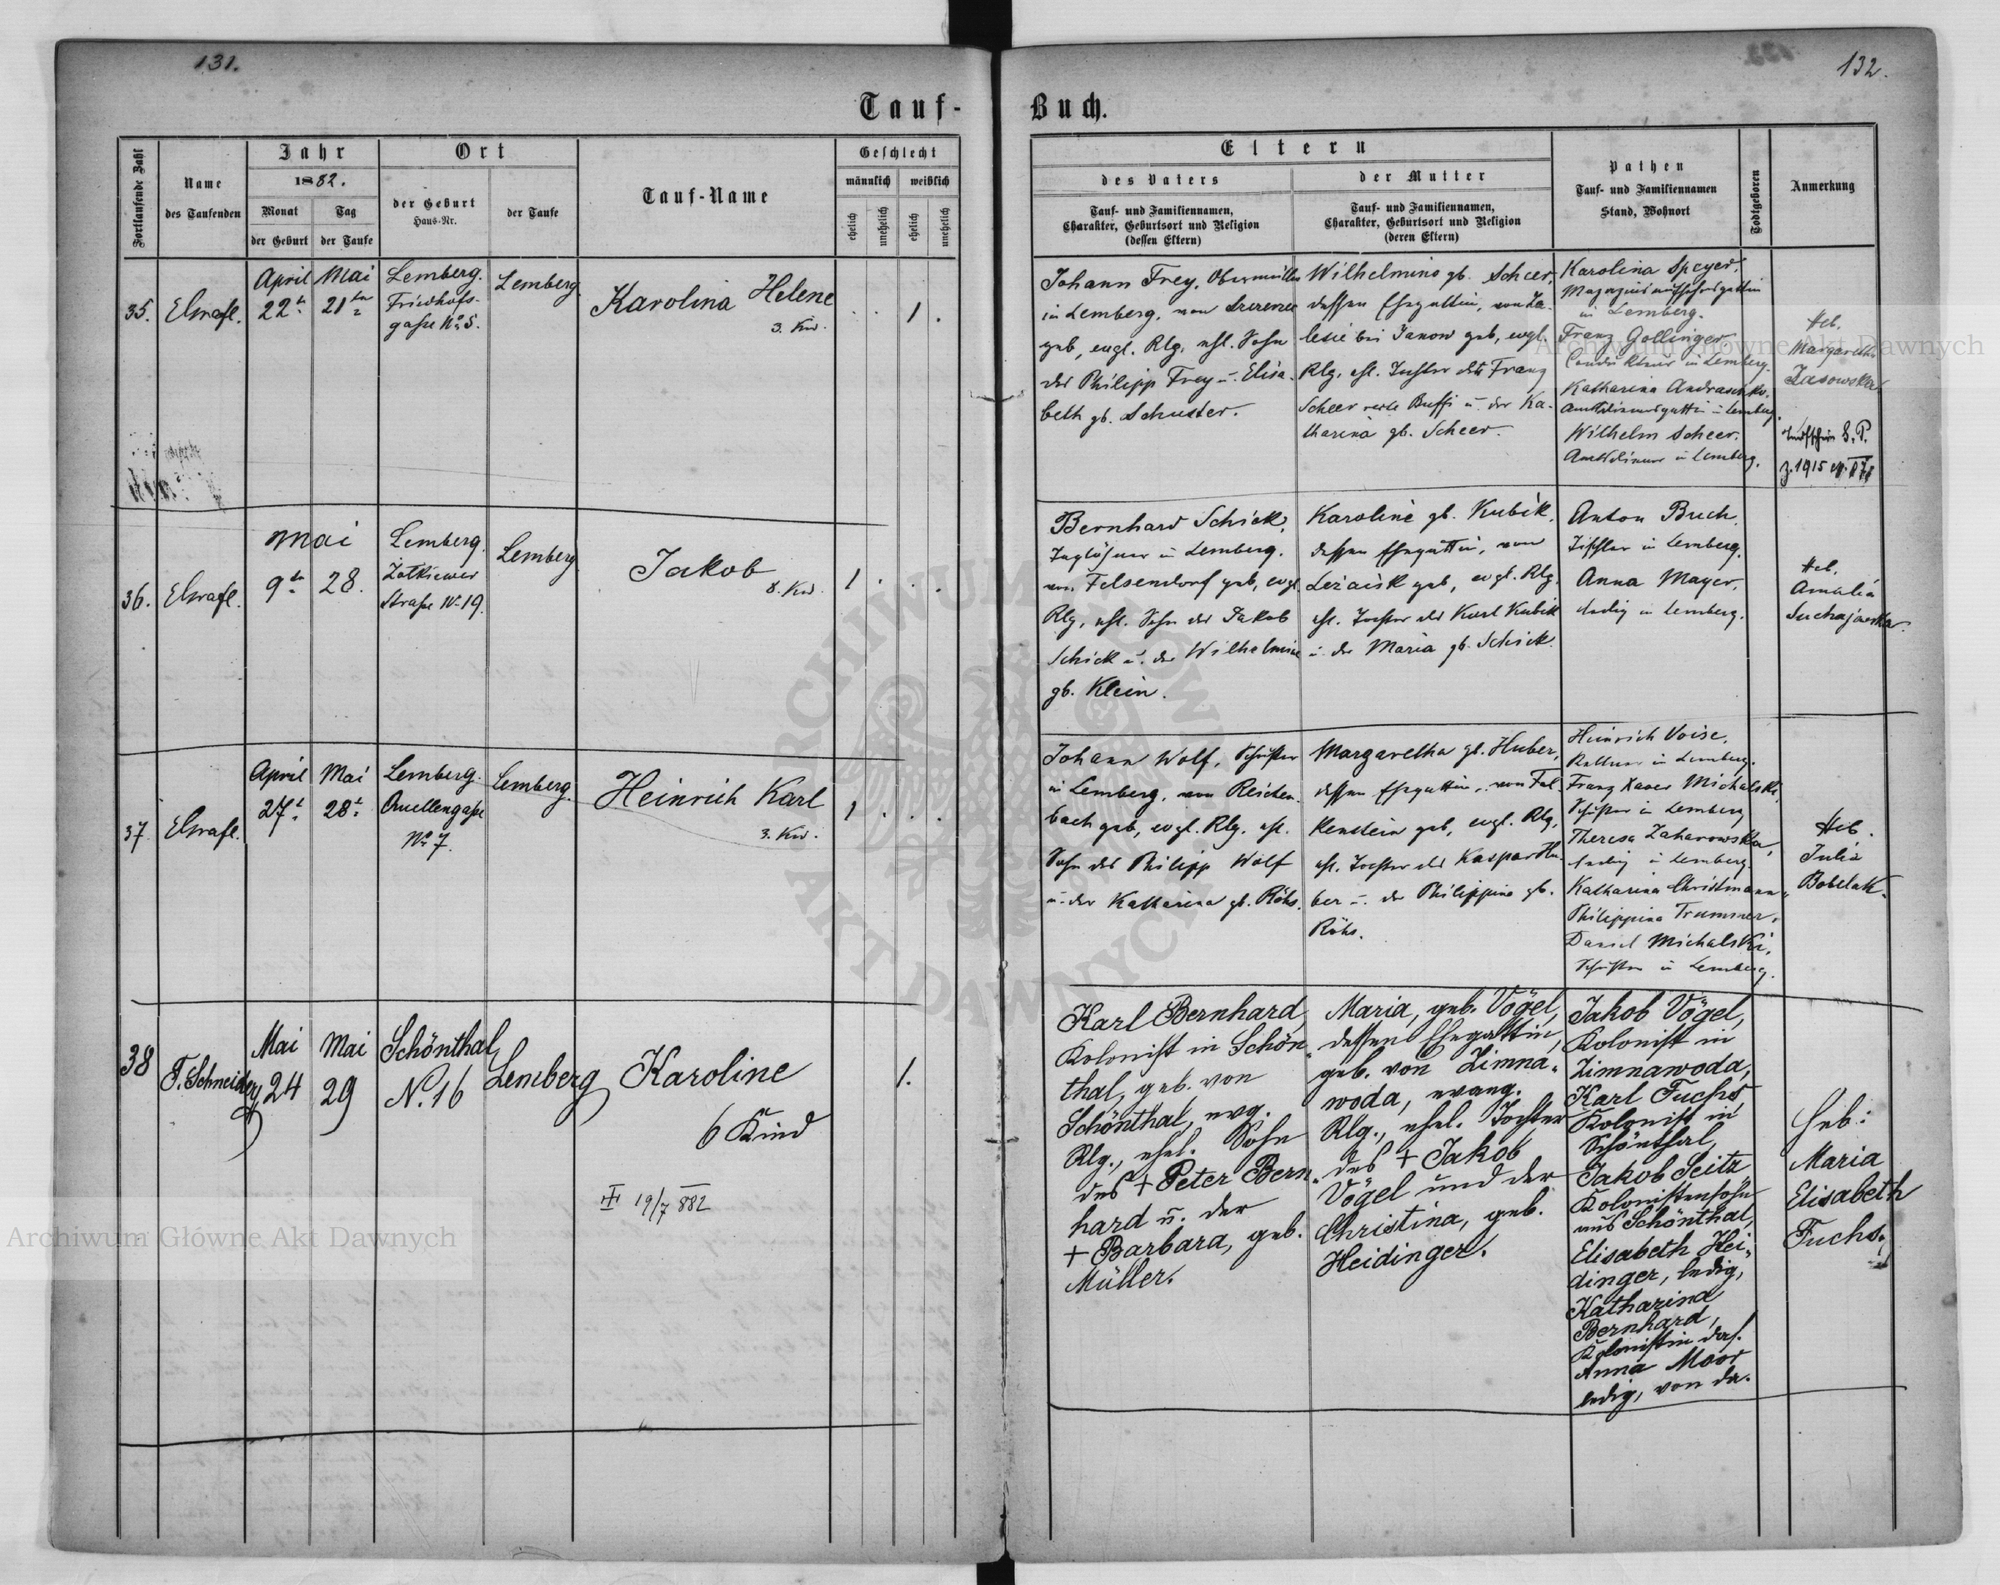 131.
132.
Tauf-
Buch.
Fortlaufende Zahl
Name
des Taufenden
Jahr
1882.
Monat
der Geburt
Tag
der Taufe
Ort
der Geburt
Haus-Nr.
der Taufe
Tauf-Name
Geschlecht
männlich
weiblich
ehelich
unehelich
ehelich
unehelich
Eltern
des Vaters
Tauf- und Familiennamen,
Charakter, Geburtsort und Religion
(dessen Eltern)
der Mutter
Tauf- und Familiennamen,
Charakter, Geburtsort und Religion
(deren Eltern)
Pathen
Tauf- und Familiennamen
Stand, Wohnort
Todtgeboren
Anmerkung
35.
April
22
Mai
21
Lemberg.
Friedhofs-
gasse No 5.
Lemberg.
Karolina Helene
3. Kind.
1
Johann Frey,
in Lemberg, von
geb, evgl. Rlg, ehl. Sohn
des Philipp Frey u. Elisa-
beth gb. Schuster.
Wilhelmine gb. Scheer,
dessen Ehegattin, von Za-
lesie bei Janow geb, evgl.
Rlg, ehl. Tochter des Franz
Scheer recte Buffi u. der Ka-
tharina gb. Scheer.
Karolina Speyer,
in Lemberg.
Franz Gollinger
in Lemberg.
Katharina
in Lemberg.
Wilhelm Scheer,
Amtsdiener in Lemberg.
Heb.
Margaretha
Jasowska
36.
Mai
9
28.
Lemberg.
Zołkiewer
Strasse No 19.
Lemberg
Jakob
8. Kind.
1
Bernhard Schick,
Taglöhner in Lemberg,
von Felsendorf geb, evgl.
Rlg, ehl. Sohn des Jakob
Schick u. der Wilhelmine
gb. Klein.
Karoline gb. Kubik,
dessen Ehegattin, von
Leżaisk geb, evgl. Rlg,
ehl. Tochter des Karl Kubik
u. der Maria gb. Schick.
Anton Buch,
Tischler in Lemberg.
Anna Mayer,
ledig in Lemberg.
Heb.
Amalia
Suchajowska.
37
April
27
Mai
28
Lemberg.
Quellengasse
No 7.
Lemberg.
Heinrich Karl
3. Kind.
1
Johann Wolf, Schuster
in Lemberg, von Reichen-
bach geb, evgl. Rlg. ehl.
Sohn des Philipp Wolf
u. der Katharina gb. Röhs.
Margaretha gb. Huber,
dessen Ehegattin, von Fal-
kenstein geb, evgl. Rlg,
ehl. Tochter des Kaspar Hu-
ber u. der Philippine gb.
Röhs.
Heinrich Voise,
Kellner in Lemberg.
Franz Xaver Michalski,
Schuster in Lemberg
Theresa Zaharowska,
ledig in Lemberg
Katharina Christmann,
Philippina Trummer,
Daniel Michalski,
Schuster in Lemberg.
Heb.
Julia
Bobelak.
38
F. Schneider
Mai
24
Mai
29
Schönthal
N. 16
Lemberg
Karoline
6 Kind
19/7 882
1.
Karl Bernhard,
Kolonist in Schön-
thal, geb. von
Schönthal, evg.
Rlg., ehel. Sohn
des + Peter Bern-
hard u. der
+ Barbara, geb.
Müller.
Maria, geb. Vögel,
dessen Ehegattin,
geb. von Zimna-
woda, evang.
Rlg., ehel. Tochter
des + Jakob
Vögel und der
Christina, geb.
Heidinger.
Jakob Vögel,
Kolonist in
Zimnawoda,
Karl Fuchs
Kolonist in
Schönthal,
Jakob Seitz
Kolonistensohn
aus Schönthal,
Elisabeth Hei-
dinger, ledig,
Katharina
Bernhard,
Kolonistin das.
Anna Moor
ledig, von da.
Heb:
Maria
Elisabeth
Fuchs.
Archiwum Główne Akt Dawnych
Archiwum Główne Akt Dawnych
ARCHIWUM GŁÓWNE
AKT DAWNYCH